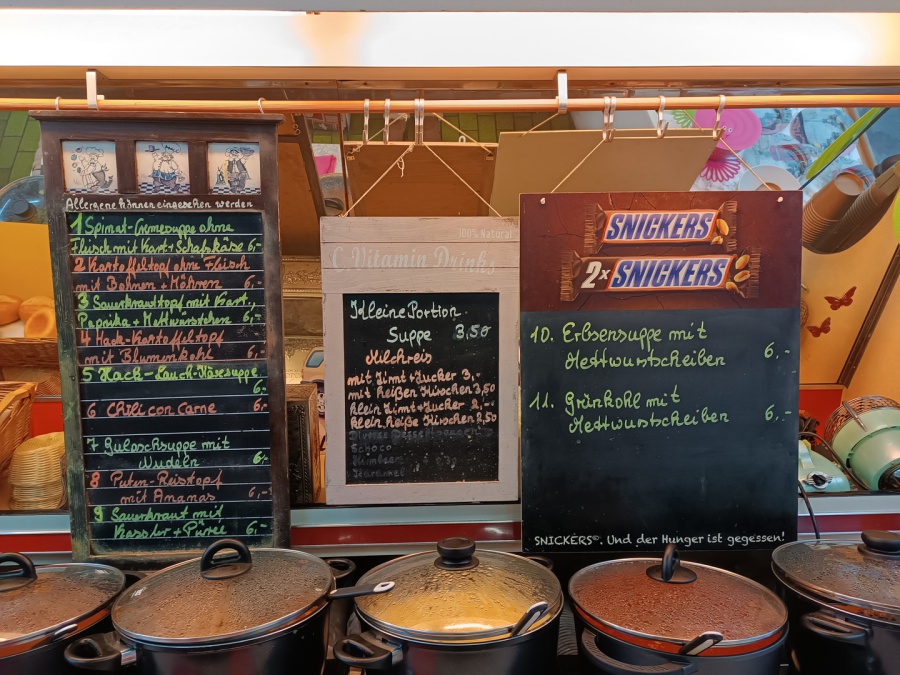 Allergene können eingesehen werden
1 Spinat-Cremesuppe ohne
Fleisch mit Kart + Schafskäse 6,-
2 Kartoffeltopf ohne Fleisch
mit Bohnen + Möhren 6,-
3 Sauerkrauttopf mit Kart.,
Paprika + Mettwürstchen 6,-
4 Hack-Kartoffeltopf
mit Blumenkohl 6,-
5 Hack-Lauch-Käsesuppe
6,-
6 Chili con Carne 6,-
7 Gulaschsuppe mit
Nudeln 6,-
8 Puten-Reistopf
mit Ananas 6,-
9 Sauerkraut mit
Kassler + Püree 6,-
100% Natural
C. Vitamin Drinks
Kleine Portion
Suppe 3,50
Milchreis
mit Zimt + Zucker 3,-
mit heißen Kirschen 3,50
klein Zimt + Zucker 2,-
klein heiße Kirschen 2,50
Schoco
Himbeere
Karamel
SNICKERS
2x SNICKERS
10. Erbsensuppe mit
Mettwurstscheiben 6,-
11. Grünkohl mit
Mettwurstscheiben 6,-
SNICKERS®. Und der Hunger ist gegessen!